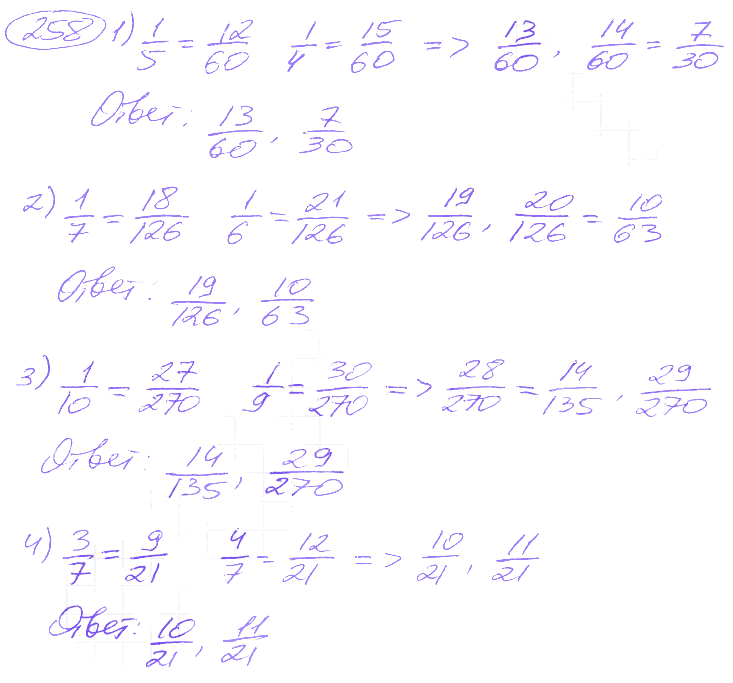 258 1) 1/5 = 12/60 1/4 = 15/60 => 13/60, 14/60 = 7/30
Ответ: 13/60, 7/30
2) 1/7 = 18/126 1/6 = 21/126 => 19/126, 20/126 = 10/63
Ответ: 19/126, 10/63
3) 1/10 = 27/270 1/9 = 30/270 => 28/270 = 14/135, 29/270
Ответ: 14/135, 29/270
4) 3/7 = 9/21 4/7 = 12/21 => 10/21, 11/21
Ответ: 10/21, 11/21